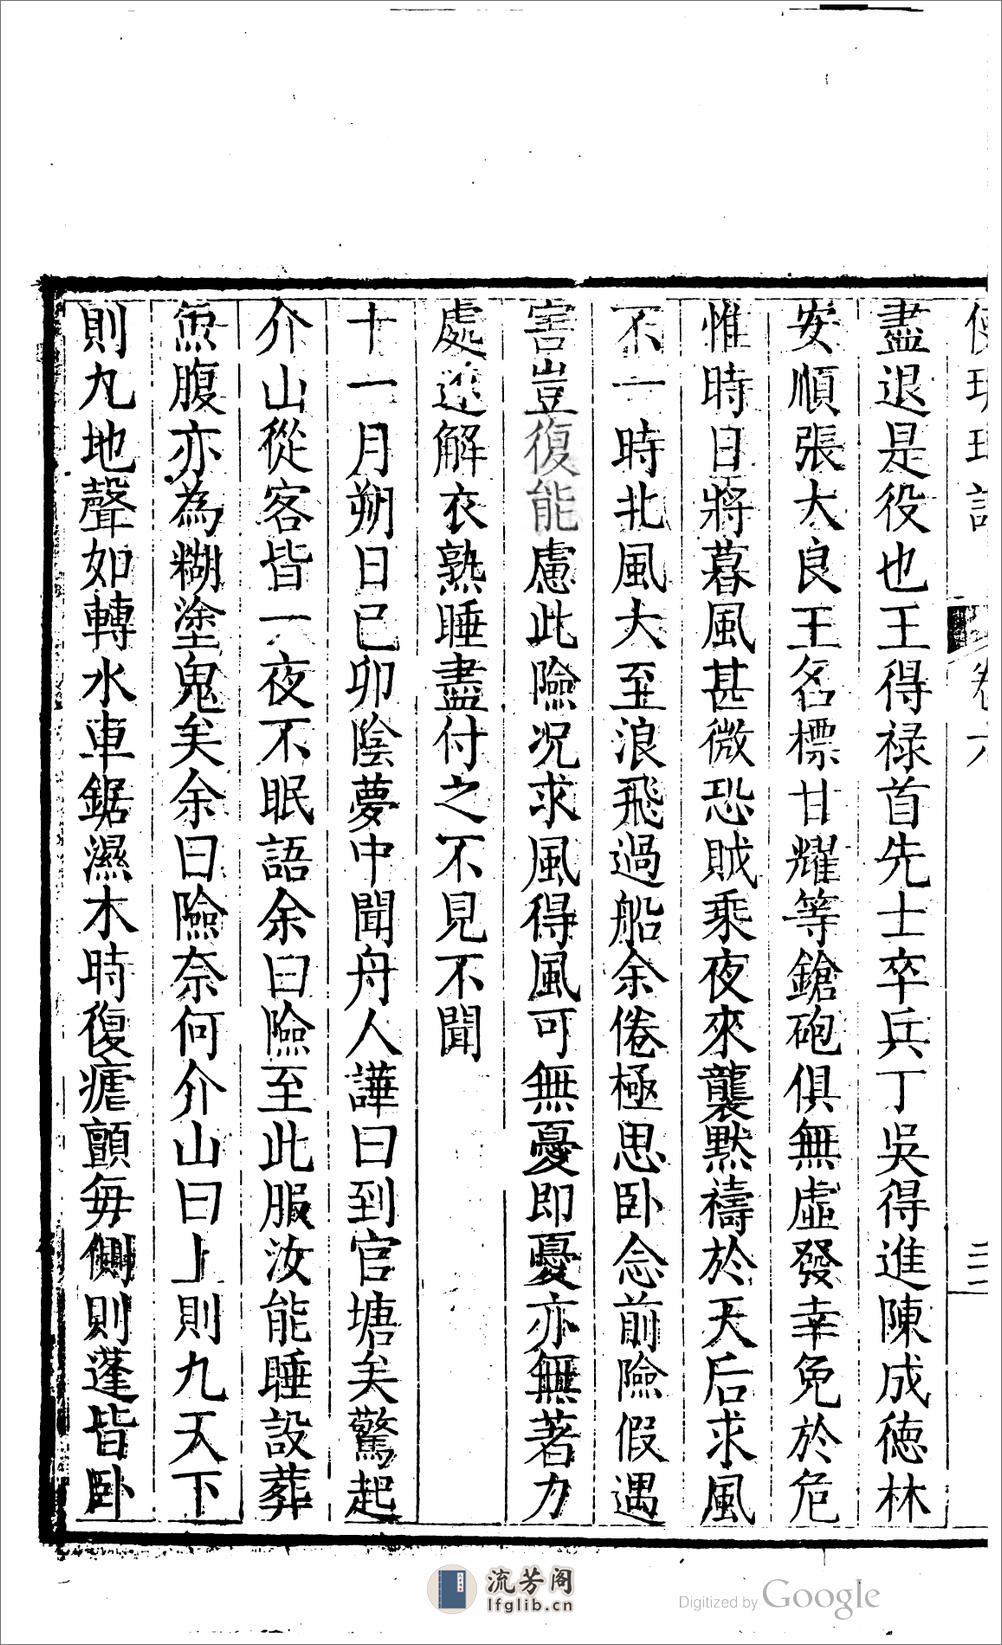 使琉球記 卷六 三二
盡退是役也王得禄首先士卒兵丁吳得進陳成德林
安順張大良王名標甘耀等鎗砲俱無虛發幸免於危
惟時日將暮風甚微恐賊乘夜來襲默禱於天后求風
不一時北風大至浪飛過船余倦極思卧念前險假遇
害豈復能慮此險况求風得風可無憂即憂亦無著力
處遂解衣熟睡盡付之不見不聞
十一月朔日已卯陰夢中聞舟人譁曰到官塘矣驚起
介山從客皆一夜不眠語余曰險至此服汝能睡設葬
魚腹亦為糊塗鬼矣余曰險奈何介山曰上則九天下
則九地聲如轉水車鋸濕木時復瘧顫每側則蓬皆卧
流芳阁
lfglib.cn
Digitized by Google